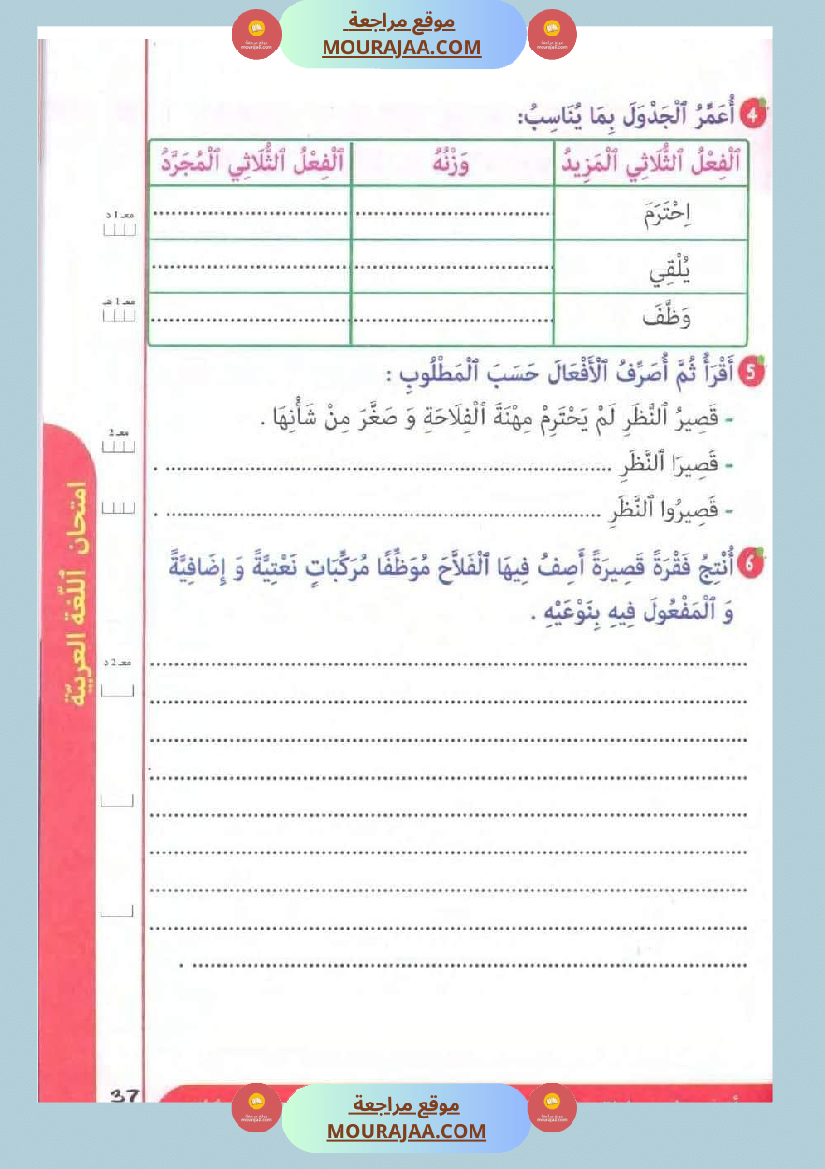 موقع مراجعة
MOURAJAA.COM
4 أُعَمِّرُ ٱلْجَدْوَلَ بِمَا يُنَاسِبُ:
ٱلْفِعْلُ ٱلثُّلَاثِي ٱلْمَزِيدُ وَزْنُهُ ٱلْفِعْلُ ٱلثُّلَاثِي ٱلْمُجَرَّدُ
اِحْتَرَمَ
يُلْقِي
وَظَّفَ
5 أَقْرَأُ ثُمَّ أُصَرِّفُ ٱلْأَفْعَالَ حَسَبَ ٱلْمَطْلُوبِ :
- قَصِيرُ ٱلنَّظَرِ لَمْ يَحْتَرِمْ مِهْنَةَ ٱلْفِلَاحَةِ وَ صَغَّرَ مِنْ شَأْنِهَا .
- قَصِيرَا ٱلنَّظَرِ .......... .
- قَصِيرُوا ٱلنَّظَرِ .......... .
6 أُنْتِجُ فَقْرَةً قَصِيرَةً أَصِفُ فِيهَا ٱلْفَلاَّحَ مُوَظِّفًا مُرَكَّبَاتٍ نَعْتِيَّةً وَ إِضَافِيَّةً
وَ ٱلْمَفْعُولَ فِيهِ بِنَوْعَيْهِ .
معـ 1 د
معـ 1 هـ
معـ 2
معـ 2 د
امتحان ٱللّغة العربيّة
37
موقع مراجعة
MOURAJAA.COM